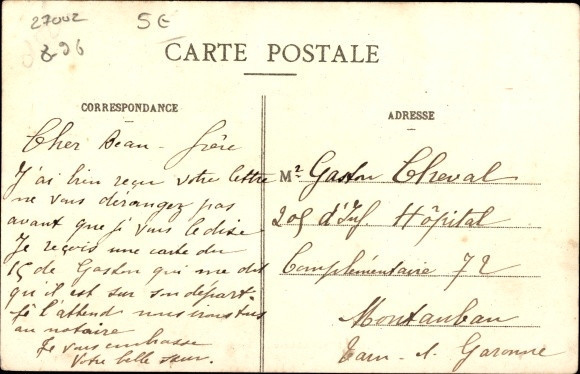 27002
5€
296
CARTE POSTALE
CORRESPONDANCE
Cher Beau-frère
J'ai bien reçu votre lettre
ne vous dérangez pas
avant que je vous le dise
Je reçois une carte du
15 de Gaston qui me dit
qu'il est sur son départ.
Je l'attend nous irons tous
au notaire
Je vous embrasse
Votre belle sœur.
ADRESSE
Mr Gaston Cheval
205 d'Inf. Hôpital
Complémentaire 72
Montauban
Tarn-et-Garonne